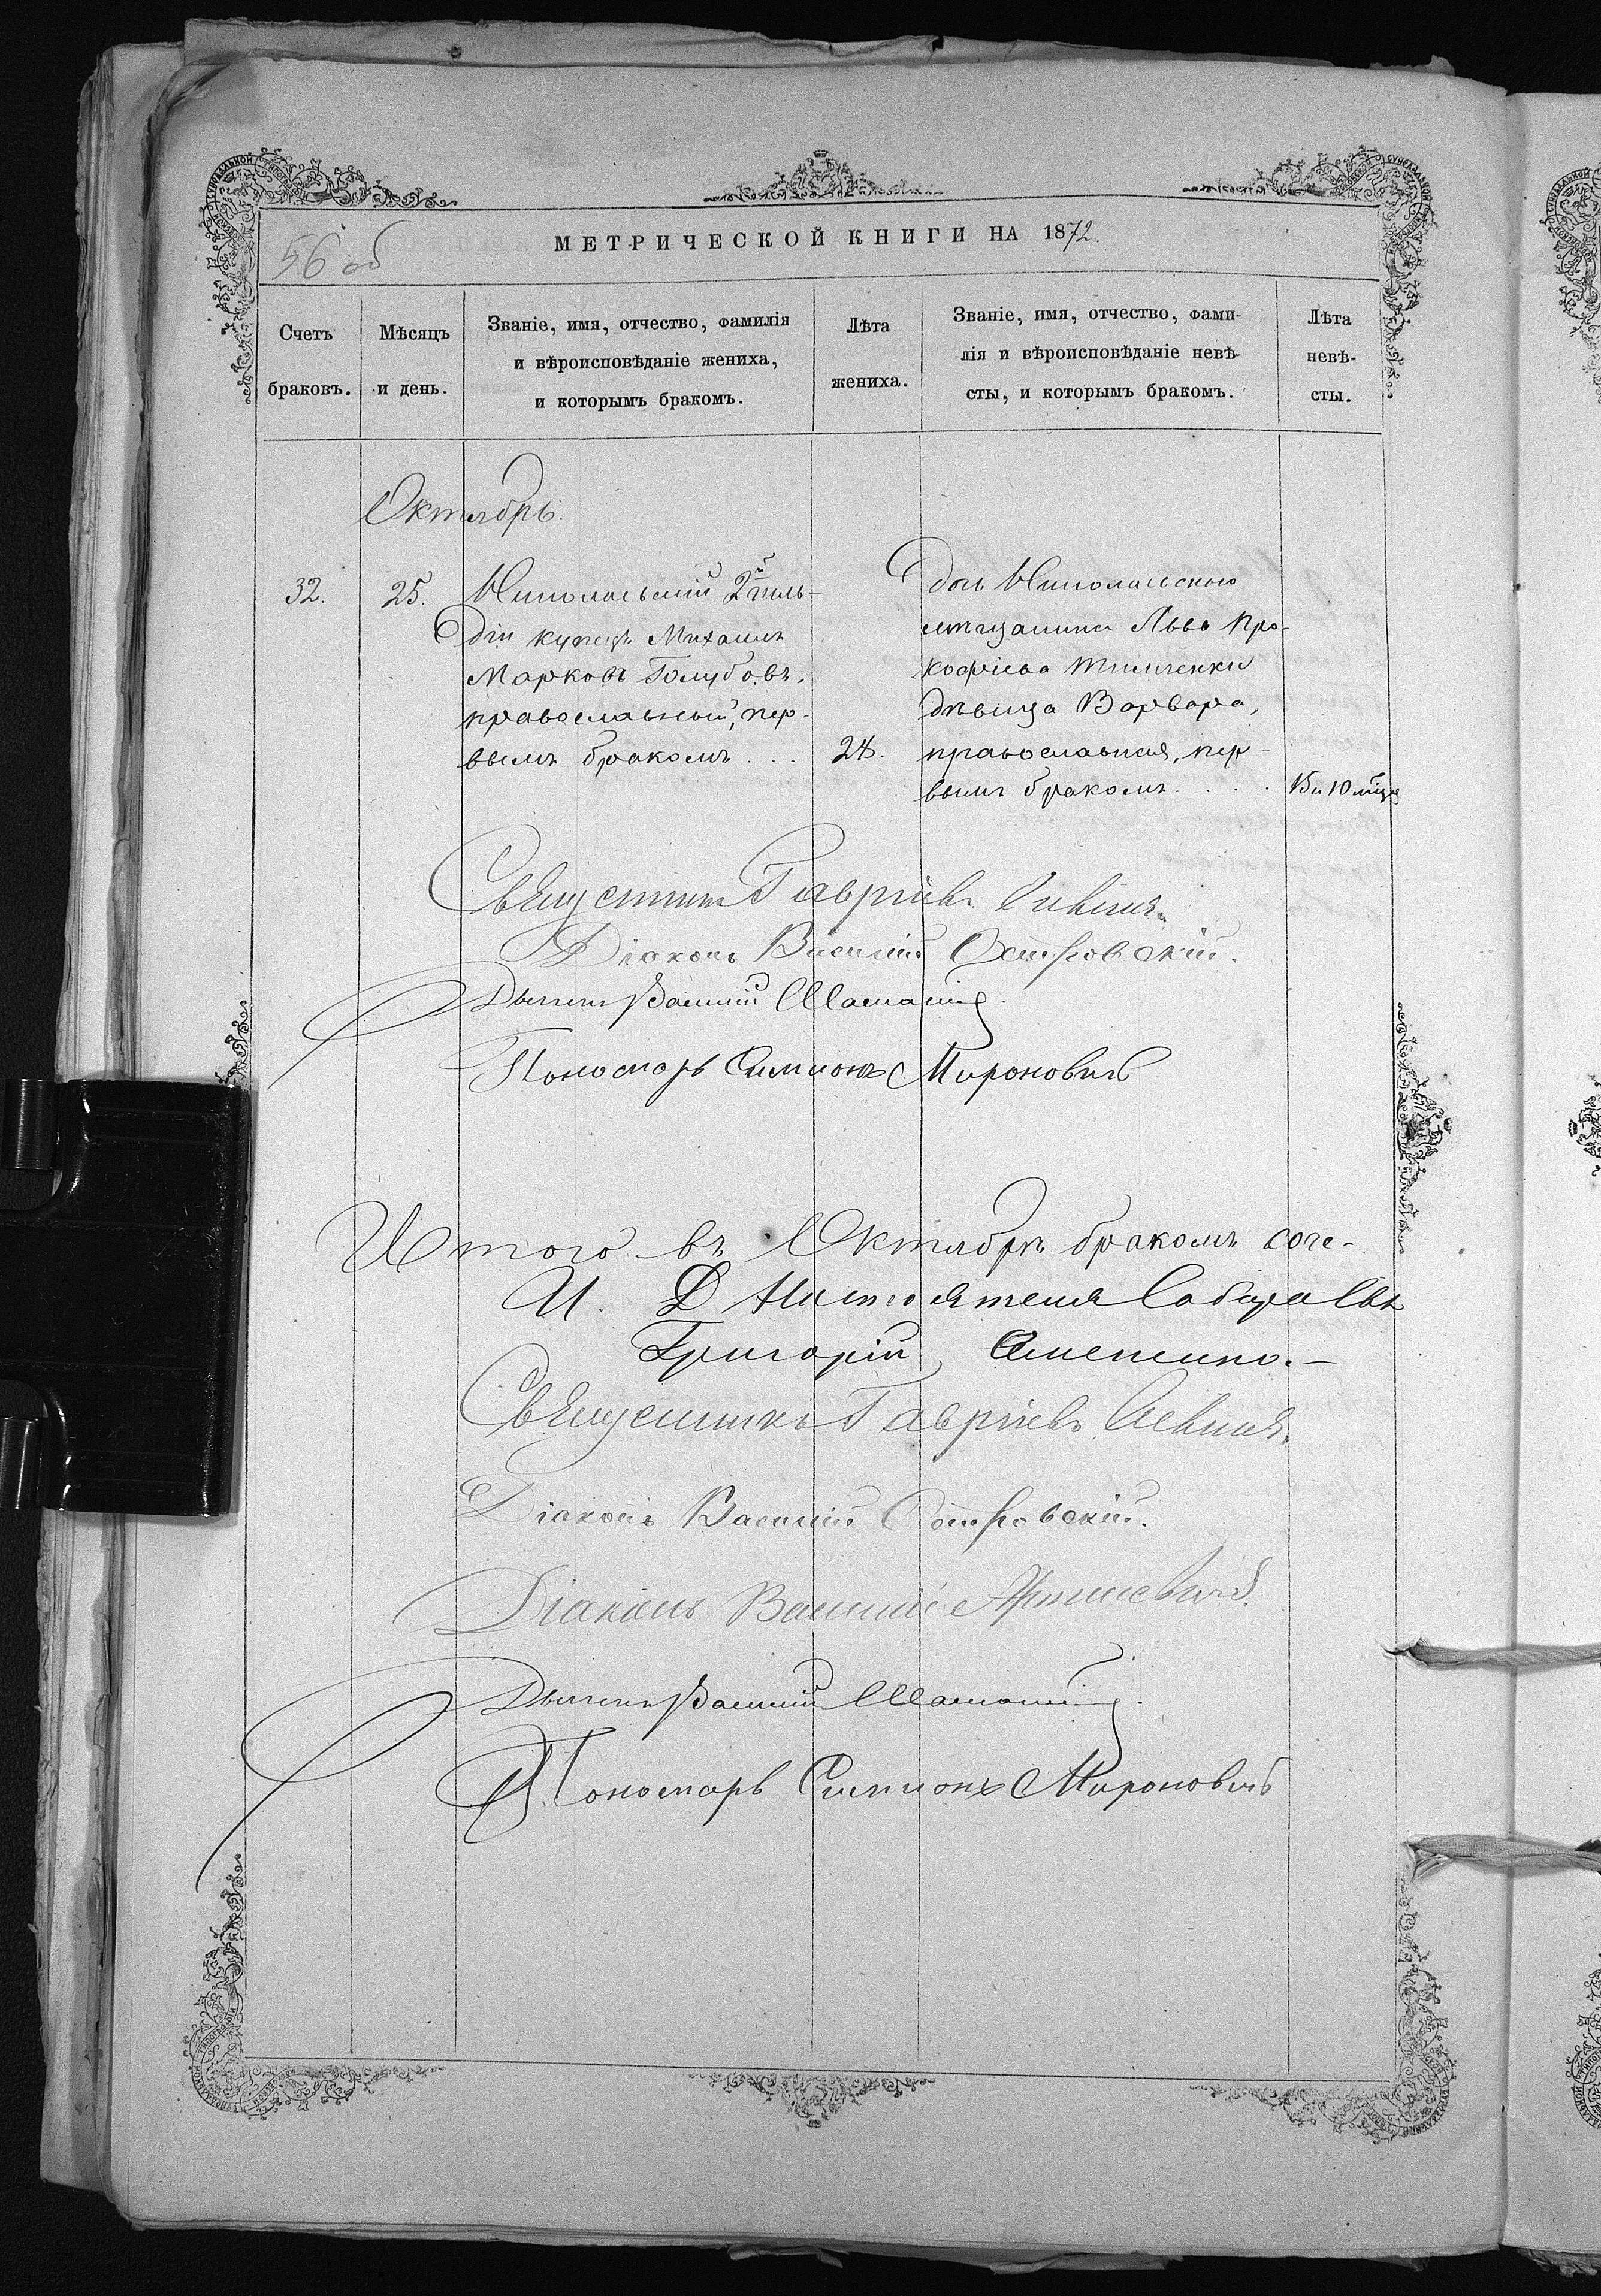 56 об
МЕТРИЧЕСКОЙ КНИГИ НА 1872.
Счетъ браковъ.
Мѣсяцъ и день.
Званіе, имя, отчество, фамилія
и вѣроисповѣданіе жениха,
и которымъ бракомъ.
Лѣта жениха.
Званіе, имя, отчество, фами-
лія и вѣроисповѣданіе невѣ-
сты, и которымъ бракомъ.
Лѣта
невѣ-
сты.
Октябрь.
32.
25.
Николаевскій 2й гиль-
діи купецъ Михаилъ
Марковъ Голубовъ,
православный, пер-
вымъ бракомъ . . .
24.
Дочь Николаевскаго
мѣщанина Льва Про-
кофіева Тимченки
дѣвица Варвара,
православная, пер-
вымъ бракомъ . . . .
15 и 10 мѣця
Священникъ Гавріилъ
Діаконъ Василій Островскій.
Дьячекъ Василій
Пономарь Симеонъ Мироновичъ
Итого въ Октябрѣ бракомъ соче-
И. Д Настоятеля Собора Свъ
Григорій
Священникъ Гавріилъ
Діаконъ Василій Островскій.
Діаконъ Василій
Дьячекъ Василій
Пономарь Симеонъ Мироновичъ